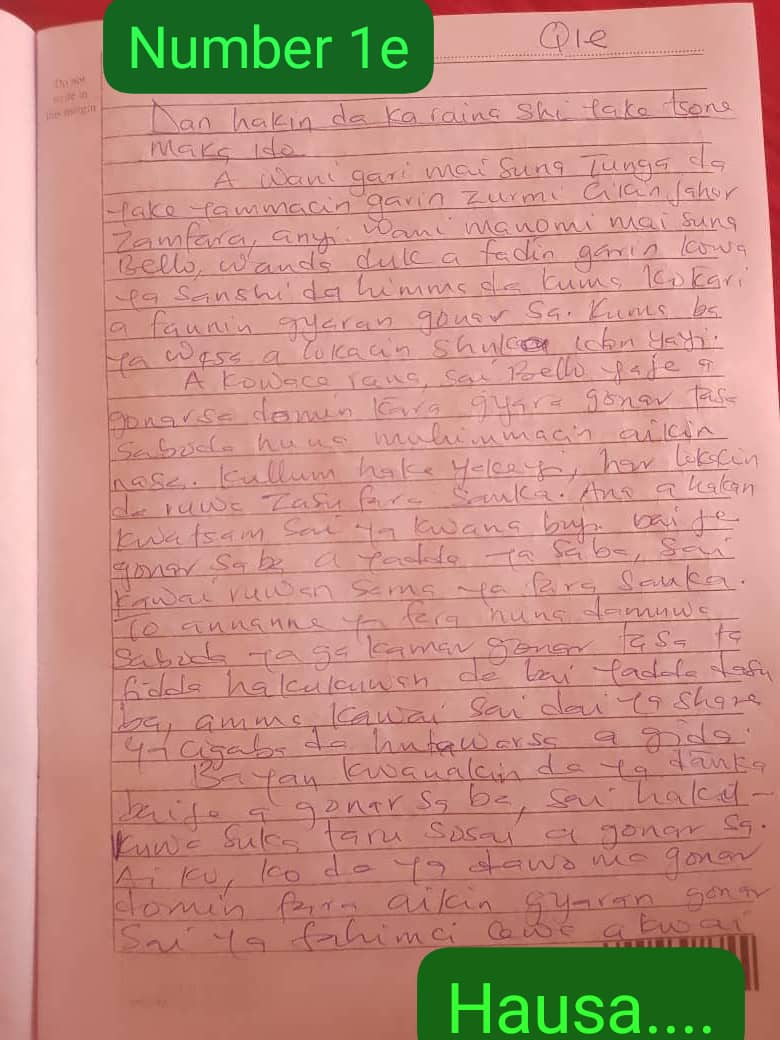 Number 1e
Q1e
Do not
write in
this margin
Dan hakin da ka raina shi take tsone
maka ido
A wani gari mai suna Tunga da
take yammacin garin Zurmi cikin Jahar
Zamfara, anyi wani manomi mai suna
Bello, wanda duk a fadin garin kowa
ya sanshi da himma da kuma kokari
a faunin gyaran gonar sa. Kuma ba
ya wasa a lokacin shuka idon yayi.
A kowace rana, sai Bello yaje a
gonarsa domin kara gyara gonar tasa
saboda nuna muhimmacin aikin
nasa. Kullum haka yakeyi, har lokacin
da ruwa zasu fara sauka. Ana a hakan
kwatsam sai ya kwana biyu bai je
gonar sa ba a yadda ya saba, sai
kawai ruwan sama ya fara sauka.
To annanne ya fara nuna damuwa
saboda ya ga kamar gonar tasa ta
fidda hakukuwan da bai yadda dasu
ba, amma kawai sai dai ya share
ya cigaba da hutawarsa a gida.
Bayan kwanakin da ya dauka
baije a gonar sa ba, sai haku-
kuwa suka taru sosai a gonar sa.
Ai ku, ko da ya dawo ma gonar
domin fara aikin gyaran gonar
sai ya fahimci cewa akwai
Hausa....